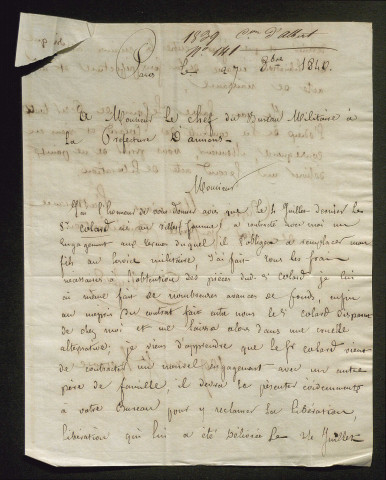 1839 Con d'albert
No 141
Paris Le 27 8bre 1840.
A Monsieur le chef du Bureau Militaire à
La Prefecture D'amiens.
Monsieur
J'ai l'honneur de vous donner avis que le 4 Juillet dernier les
Sr Colard né à a contracté avec moi un
Engagement aux termes duquel il s'obligeait à remplacer mon
fils au service militaire J'ai fait tous les frais
necessaires à l'obtention des pièces dud. Sr Colard je lui
ai même fait de nombreuses avances de fonds, enfin
au mépris du contrat fait entre nous le Sr Colard disparut
de chez moi et me laissa alors dans une cruelle
alternative; je viens d'apprendre que le Sr Colard vient
de contracter un nouvel engagement avec un autre
père de famille, il devra se présenter incessamment
à votre Bureau pour y reclamer sa libération,
libération qui lui a été délivrée le 24 Juillet